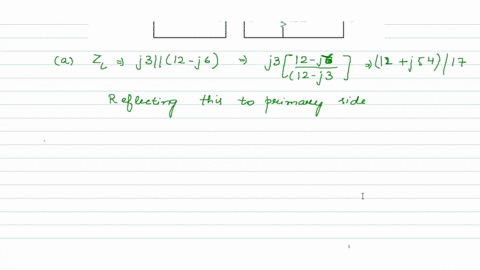 (a) Z_L ⇒ j3||(12-j6) ⇒ j3[(12-j6)/(12-j3] ⇒ (12+j54)/17
Reflecting this to primary side